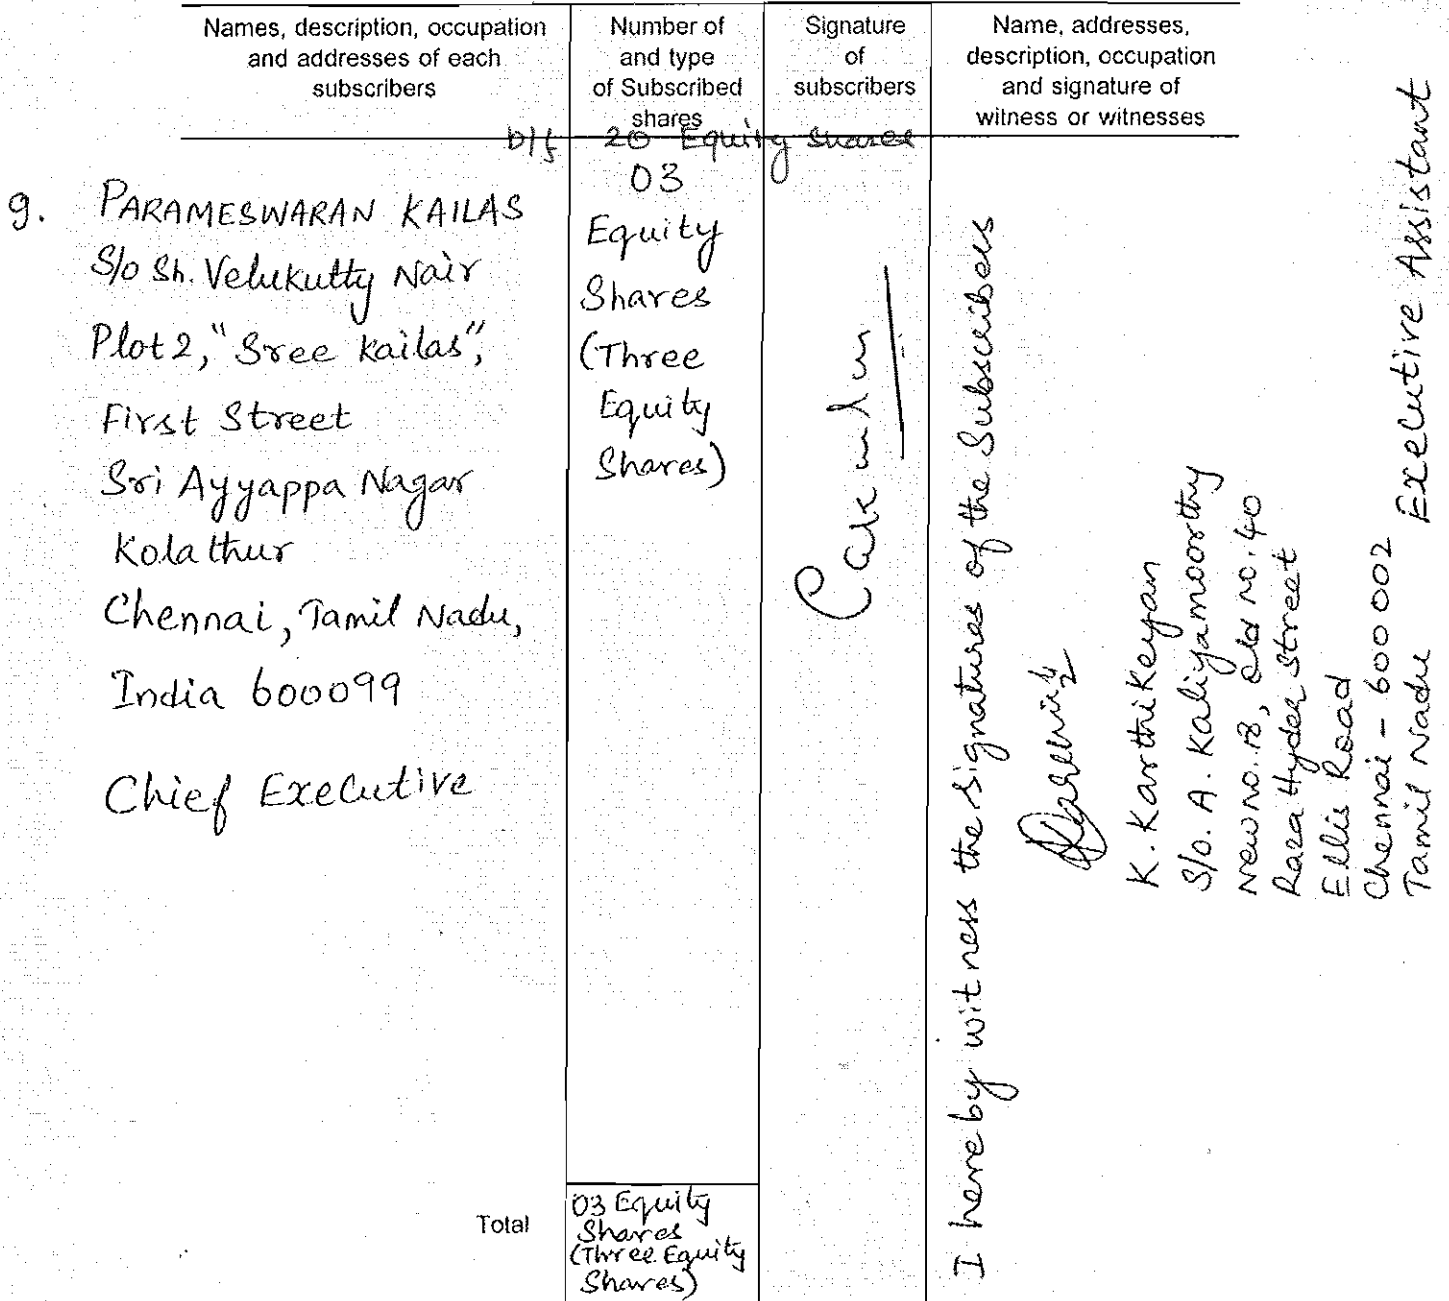 Names, description, occupation
and addresses of each
subscribers
Number of
and type
of Subscribed
shares
Signature
of
subscribers
Name, addresses,
description, occupation
and signature of
witness or witnesses
b/f 20 Equity Shares
9. PARAMESWARAN KAILAS
S/o Sh. Velukutty Nair
Plot 2, "Sree Kailas",
First Street
Sri Ayyappa Nagar
Kolathur
Chennai, Tamil Nadu,
India 600099
Chief Executive
03
Equity
Shares
(Three
Equity
Shares)
I hereby witness the signatures of the Subscribers
K. Karthikeyan
S/o. A. Kaliyamoorthy
New no. 18, old no. 40
Raza Hyder Street
Ellis Road
Chennai - 600 002
Tamil Nadu
Executive Assistant
Total
03 Equity
Shares
(Three Equity
Shares)